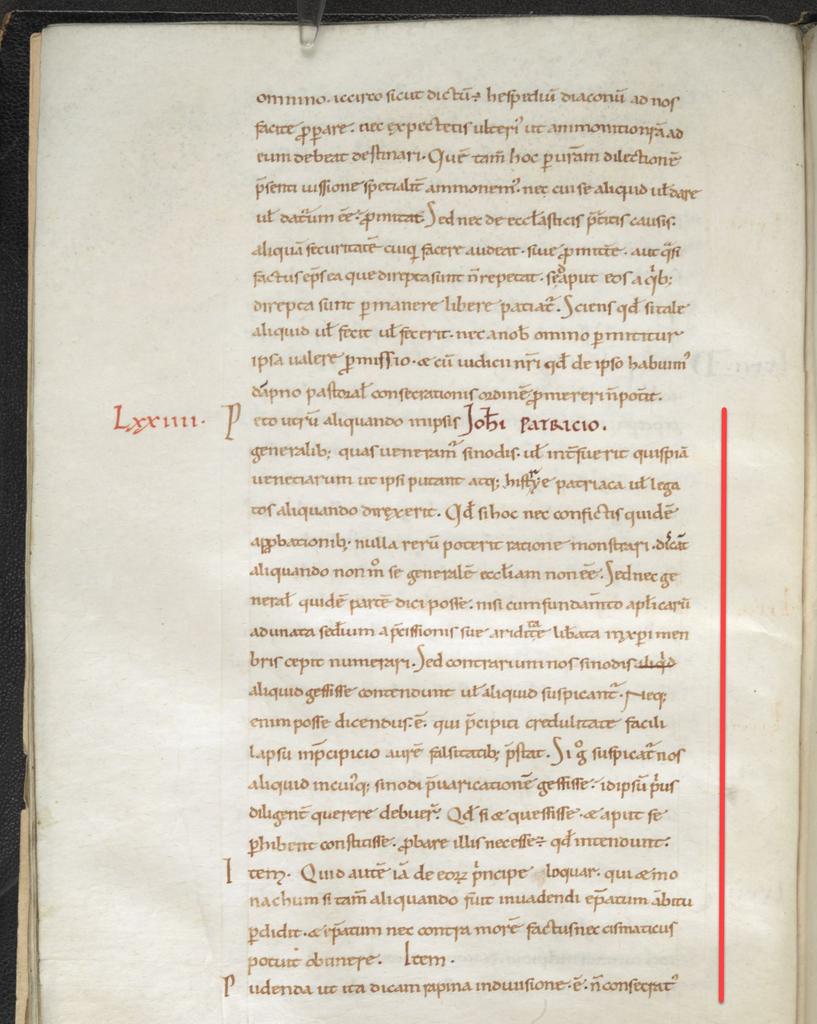 omnino. iccirco sicut dictũ ÷ hespidiũ diaconũ ad nos
facite ꝓparare. nec expectetis ulteriˀ ut ammonitio nr̃a ad
eum debeat destinari. Quẽ tam̃ hoc ꝑ ur̃am dilectionẽ
p̃senti iussione specialit̃ ammonemˀ. nec cui se aliquid ul̃ dare
ul̃ daturum eẽ. ꝓmittat. Sed nec de eccl̃asticis p̃teritis causis.
aliquã securitatẽ cuiq̃ facere audeat. siue ꝓmitte. aut q̃si
factus ep̃s ea que direpta sunt ñ repetat. sed aput eos a qib;
direpta sunt ꝑmanere libere patiat̃. Sciens qđ si tale
aliquid ul̃ fecit ul̃ fecerit. nec a nob̃ omnino ꝑmittitur
ipsa ualere ꝑmissio. & cũ iudiciũ nr̃i qđ de ipso habuimˀ
dãpno pastoral̃ consecrationis ordinẽ ꝓmereri ñ potit̃.
Lxxiiii. Peto utrũ aliquando in ipsis Joħi patricio.
generalib; quas ueneram̃ sinodis. ul̃ int̃fuerit quispiã
uenetiarum ut ipsi putant atq; histrie patriarca ul̃ lega
tos aliquando direxerit. Qđ si hoc nec confictis quidẽ
apꝓbationib; nulla rerũ poterit ratione monstrari. dicãt
aliquando non m̃ se generalẽ eccl̃iam non eẽ. Sed nec ge
neral̃ quidẽ partẽ dici posse. nisi cum fundam̃to apl̃icarũ
adunata sedium a p̃cissionis sue ariditate lib̃ata in xp̃i mem
bris cepit numerari. Sed contrarium nos sinodis aliqđ
aliquid gessisse contendunt ul̃ aliquid suspicant̃. Neq;
enim posse dicendus. ẽ. qui p̃cipiti credulitate facili
lapsu in p̃cipicio aurẽ falsitatib; p̃stat. Si g̊ suspicat̃ nos
aliquid in cuiq; sinodi p̃uaricationẽ gessisse. id ipsũ p̃us
diligent̃ querere debuer̃. Qđ si & quesisse. & aput se
ꝑhibent constitisse. ꝓbare illis necesse ÷ qđ intendunt.
Item. Quid autẽ iã de eoꝝ p̃ncipe loquar. qui & mo
nachum si tam̃ aliquando fuit inuadendi ep̃atum ãbitu
ꝑdidit. & ep̃atum nec contra morẽ factus nec cismaticus
potuit obtinere. Item.
Pudenda ut ita dicam rapina in diuisione. ẽ. ñ consecratˀ